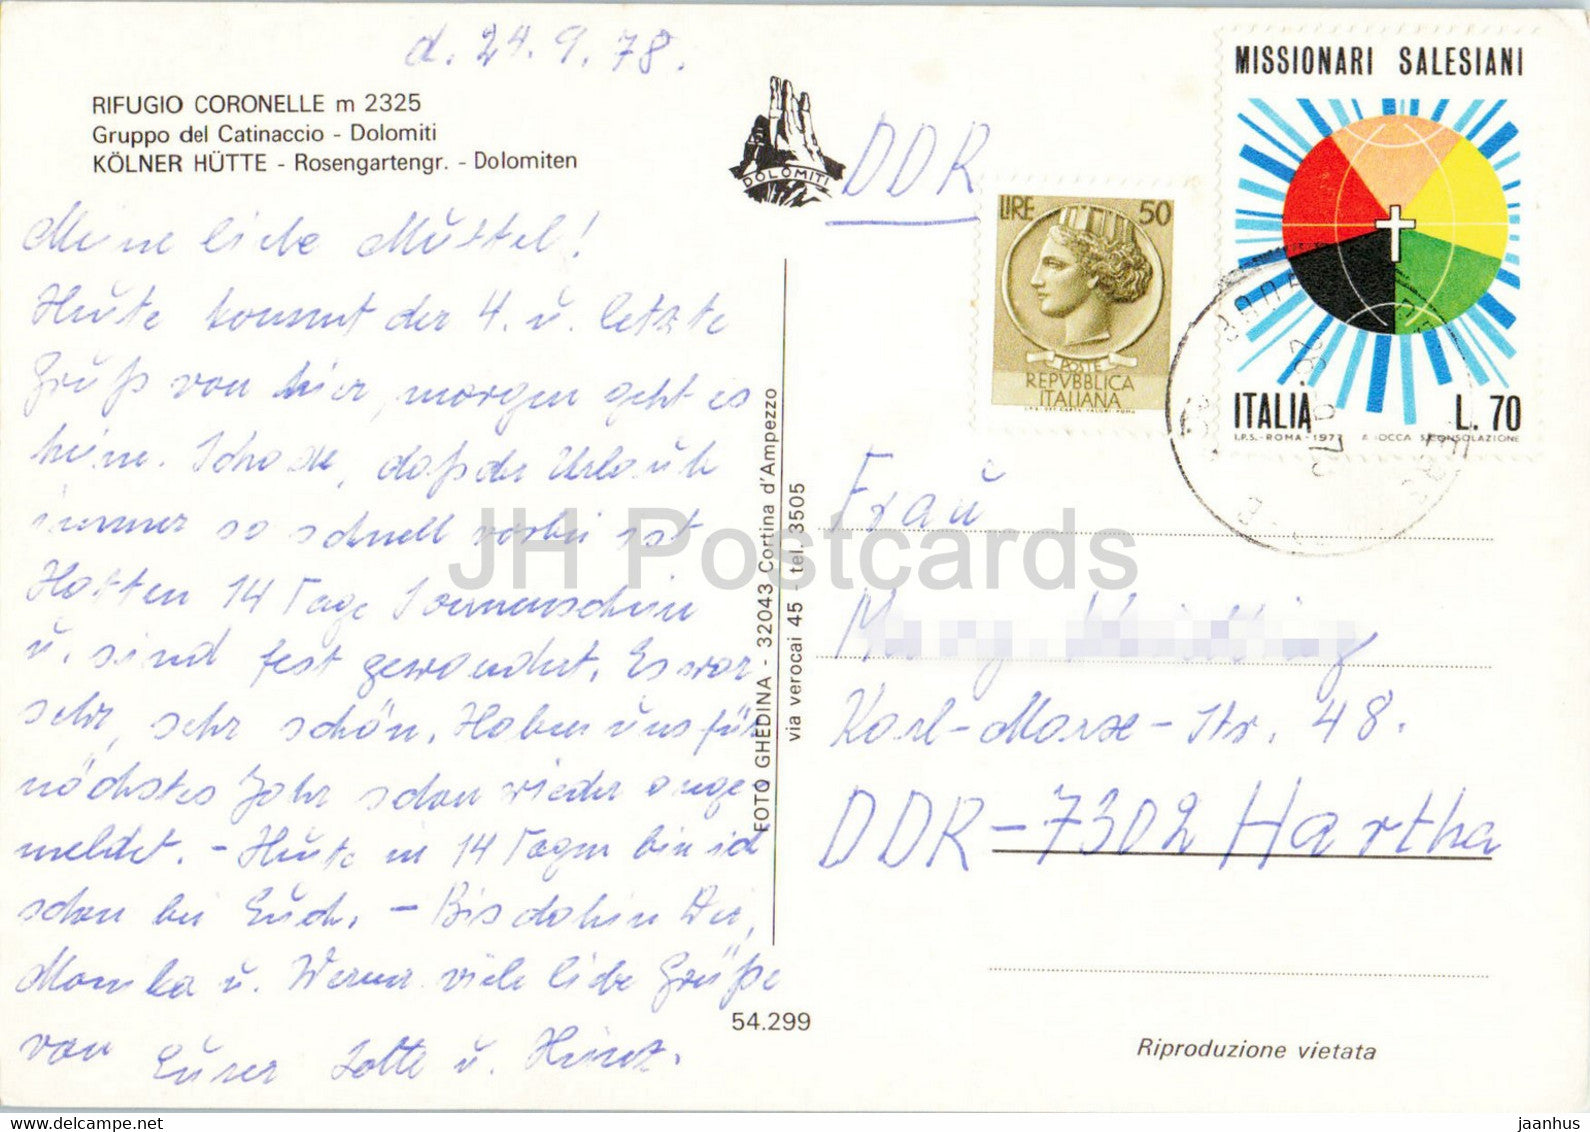 d. 24.9.78.
RIFUGIO CORONELLE m 2325
Gruppo del Catinaccio - Dolomiti
KÖLNER HÜTTE - Rosengartengr. - Dolomiten
DOLOMITI
Meine liebe Muttel!
Heute kommt der 4. u. letzte
Gruß von hier, morgen geht es
heim. Schade, daß der Urlaub
immer so schnell vorbei ist
Hatten 14 Tage Sonnenschein
u. sind fest gewandert. Es war
sehr, sehr schön. Haben uns für
nächstes Jahr schon wieder ange
meldet. - Heute in 14 Tagen bin ich
schon bei Euch. - Bis dahin Dir,
Monika u. Werner viele liebe Grüße
von Eurer Lotte u. Heinz.
FOTO GHEDINA - 32043 Cortina d'Ampezzo
via verocai 45 - tel. 3505
54.299
DDR
LIRE 50
POSTE
REPVBBLICA
ITALIANA
MISSIONARI SALESIANI
ITALIA L. 70
I.P.S.-ROMA-1977
Frau
Karl-Marx-Str. 48.
DDR-7302 Hartha
Riproduzione vietata
JH Postcards
www.delcampe.net
jaanhus